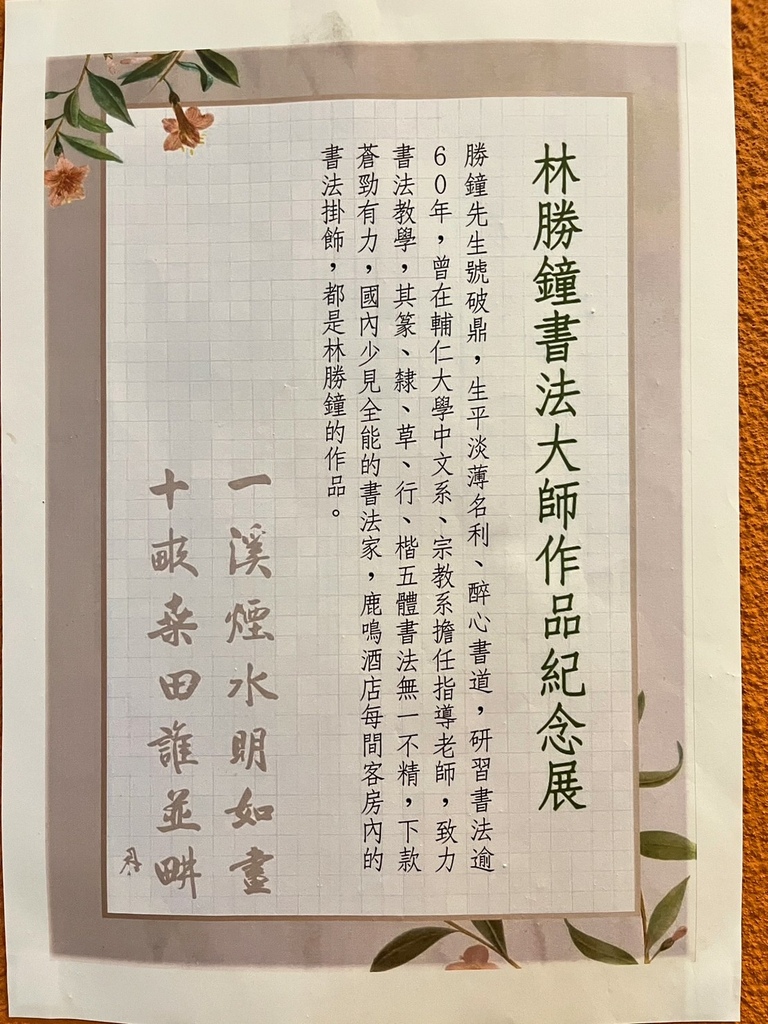 林勝鐘書法大師作品紀念展
勝鐘先生號破鼎，生平淡薄名利、醉心書道，研習書法逾
60年，曾在輔仁大學中文系、宗教系擔任指導老師，致力
書法教學，其篆、隸、草、行、楷五體書法無一不精，下款
蒼勁有力，國內少見全能的書法家，鹿鳴酒店每間客房內的
書法掛飾，都是林勝鐘的作品。
一溪煙水明如畫
十畝桑田誰並畊